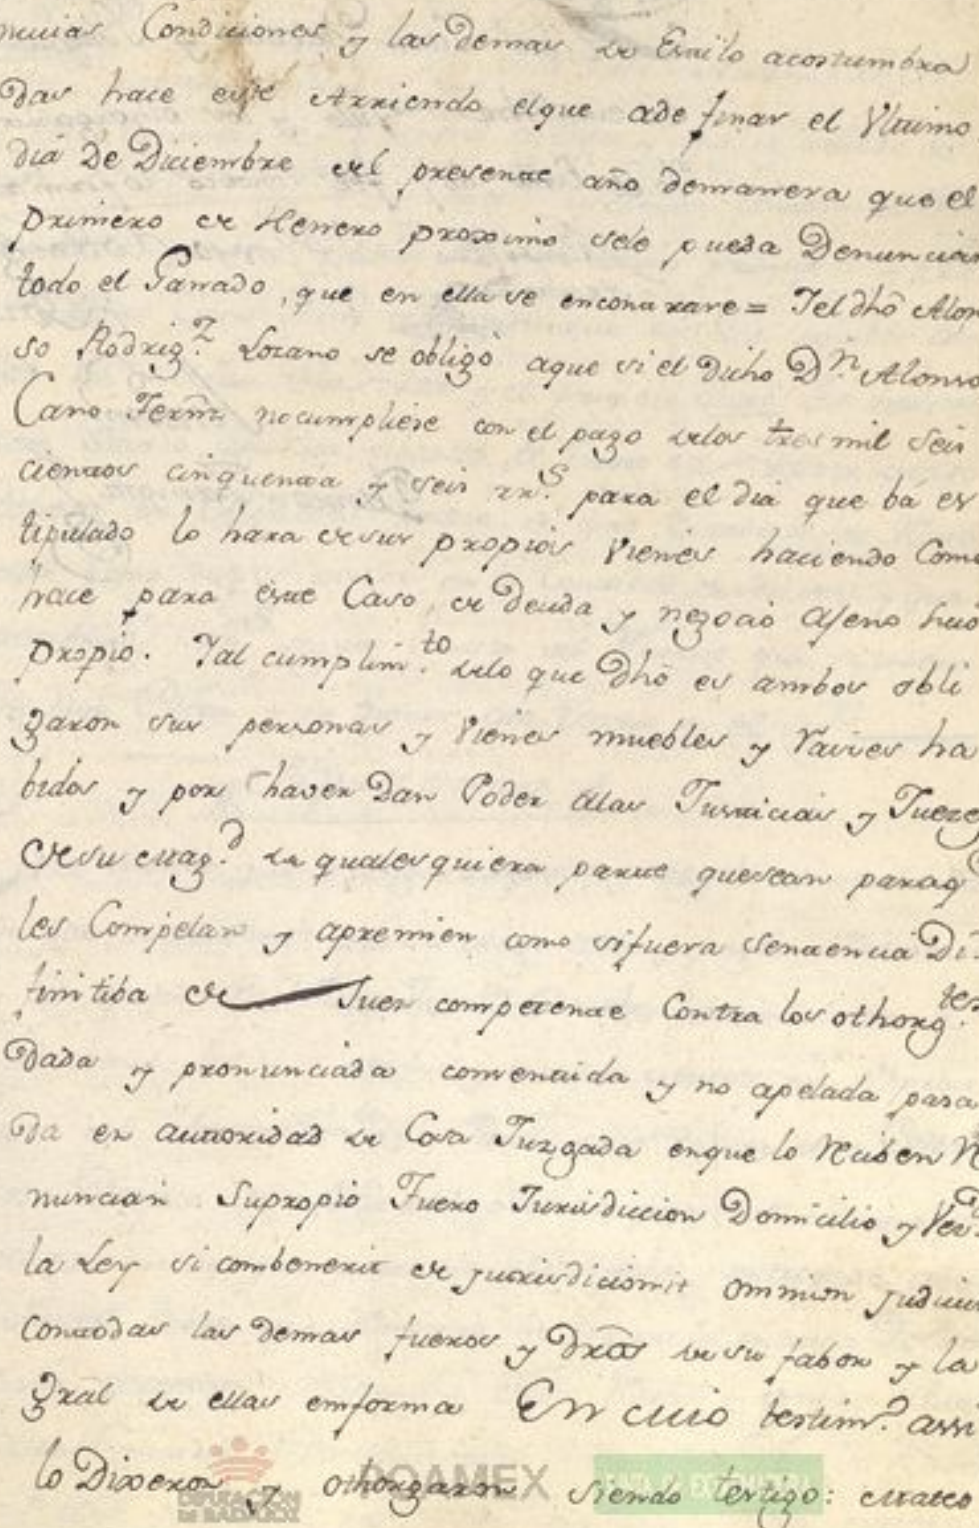 Condiciones y las demas de Estilo acostumbra
das hace este Arriendo el que ade finar el Vltimo
dia de Diciembre del presente año demanera que el
primero de Henero proximo sele pueda Denunciar
todo el Ganado, que en ella se encontrare = Yel dho Alon
so Rodrig.z Lozano se obligó aque si el dicho D.n Alonso
Cano Fernz no cumpliese con el pago delos tres mil seis
cientos cinquenta y seis rr.s para el dia que bá es
tipulado lo hara desus propios vienes haciendo Como
hace para este Caso, de deuda y negocio ajeno suio
propio. Yal cumplim.to delo que dho es ambos obli
garon sus personas y vienes muebles y raices ha
bidos y por haver Dan Poder alas Justicias y Juezes
de su Mag.d de qualesquiera parte quesean paraq
les Compelan y apremien como sifuera sentencia Di
finitiba de Juez competente Contra los othorg.tes
Dada y pronunciada consentida y no apelada pasa
da en autoridad de Cosa Juzgada enque lo reciben Re
nuncian Supropio Fuero Jurisdiccion Domicilio y Vez.d
la Ley si combenerit de jurisdicionit ommion judicum
contodas las demas fueros y dros de su fabor y la
gral de ellas enforma En cuio testim.o assi
lo Dixeron y othorgaron siendo testigo: Mateo
DIPUTACIÓN
DE BADAJOZ
ROAMEX
JUNTA DE EXTREMADURA